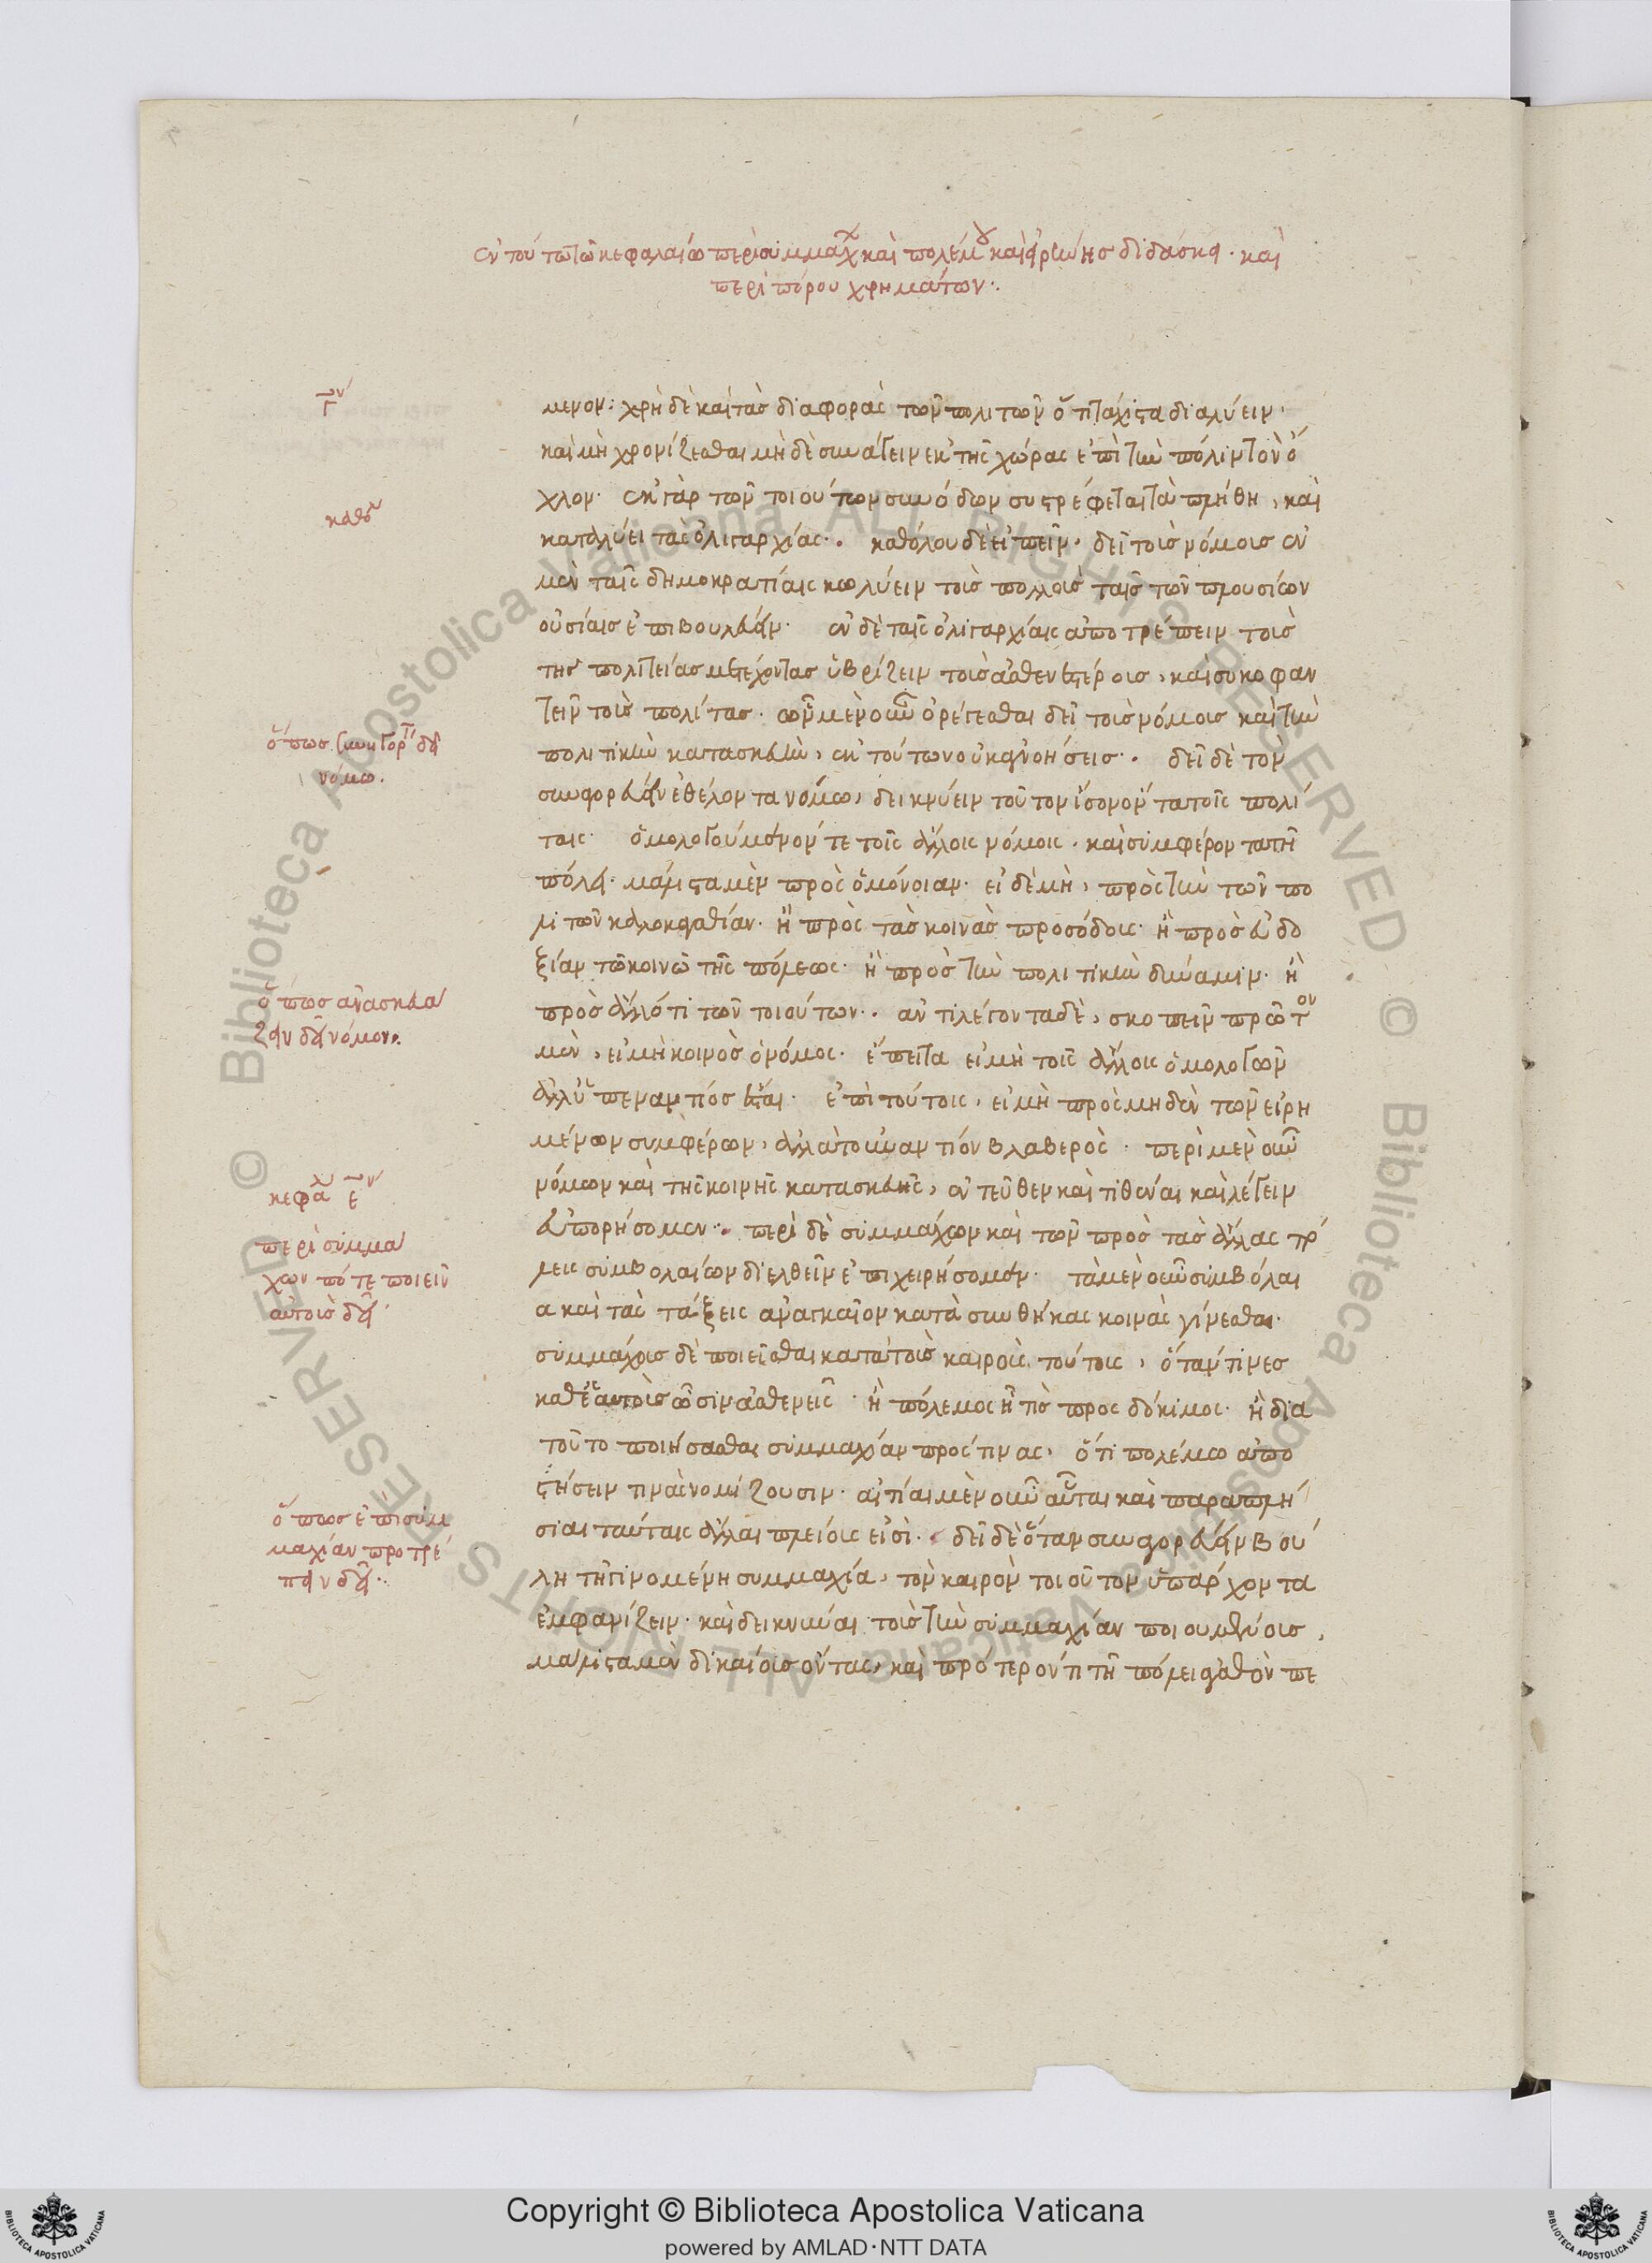 ἐν τούτω τῶ κεφαλαίω περὶ συμμάχ καὶ πολέμου καὶ εἰρήνης διδάσκει· καὶ
περὶ πόρου χρημάτων·
γον
μενον· χρὴ δὲ καὶ τὰς διαφορὰς τῶν πολιτῶν ὅτι τάχιστα διαλύειν·
καὶ μὴ χρονίζεσθαι μὴ δὲ συνάγειν ἐκ τῆς χώρας ἐπὶ τὴν πόλιν τὸν ὄ
χλον· ἐκ γὰρ τῶν τοιούτων συνόδων συστρέφεται τὰ πλήθη, καὶ
καθόλου
καταλύει τὰς ὀλιγαρχίας· καθόλου δὲ εἰπεῖν· δεῖ τοὺς νόμους ἐν
μὲν ταῖς δημοκρατίαις κωλύειν τοὺς πολλοὺς ταῖς τῶν πλουσίων
οὐσίαις ἐπιβουλεύειν· ἐν δὲ ταῖς ὀλιγαρχίαις ἀποτρέπειν τοὺς
τῆς πολιτείας μετέχοντας ὑβρίζειν τοὺς ἀσθενεστέρους, καὶ συκοφαν
τεῖν τοὺς πολίτας· ὧν μὲν οὖν ὀρέγεσθαι δεῖ τοὺς νόμους καὶ τὴν
ὅπως συνηγορ δεῖ
νόμω·
πολιτικὴν κατασκευὴν, ἐκ τούτων οὐκ ἀγνοήσεις· δεῖ δὲ τὸν
συναγορεύειν ἐθέλοντα νόμω, δεικνύειν τοῦτον ἴσον ὄντα τοῖς πολί
ταις· ὁμολογούμενόν τε τοῖς ἄλλοις νόμοις· καὶ συμφέροντα τῆ
πόλει· μάλιστα μὲν πρὸς ὁμόνοιαν· εἰ δὲ μὴ, πρὸς τὴν τῶν πο
λιτῶν καλοκαγαθίαν· ἢ πρὸς τὰς κοινὰς προσόδους· ἢ πρὸς εὐδο
ξίαν τῶ κοινῶ τῆς πόλεως· ἢ πρὸς τὴν πολιτικὴν δύναμιν· ἢ
ὅπως ἀνασκευά
ζειν δεῖ νόμον·
πρὸς ἄλλό τι τῶν τοιούτων· ἀντιλέγοντα δὲ, σκοπεῖν πρῶτον
μὲν, εἰ μὴ κοινὸς ὁ νόμος· ἔπειτα εἰ μὴ τοῖς ἄλλοις ὁμολογῶν
ἀλλ' ὑπεναντίος ἔσται· ἐπὶ τούτοις, εἰ μὴ πρὸς μηδὲν τῶν εἰρη
μένων συμφέρων, ἀλλὰ τοὐναντίον βλαβερὸς· περὶ μὲν οὖν
κεφα εον
νόμων καὶ τῆς κοινῆς κατασκευῆς, ἐντεῦθεν καὶ τιθέναι καὶ λέγειν
περὶ συμμά
χων πότε ποιεῖν
αὐτοὺς δεῖ·
εὐπορήσομεν· περὶ δὲ συμμάχων καὶ τῶν πρὸς τὰς ἄλλας πό
λεις συμβολαίων διελθεῖν ἐπιχειρήσομεν· τὰ μὲν οὖν συμβόλαι
α καὶ τὰς τάξεις ἀναγκαῖον κατὰ συνθήκας κοινὰς γίνεσθαι·
συμμάχους δὲ ποιεῖσθαι κατὰ τοὺς καιροὺς τούτους, ὅταν τινες
καθ' ἑαυτοὺς ὦσιν ἀσθενεῖς· ἢ πόλεμος ἦ τις προσδόκιμος· ἢ διὰ
τοῦτο ποιήσασθαι συμμαχίαν πρός τινας, ὅτι πολέμω ἀπο
στήσειν τινὰς νομίζουσιν· αἰτίαι μὲν οὖν αὗται καὶ παραπλή
ὅπως ἐπὶ συμ
μαχίαν προτρέ
πειν δεῖ·
σιαι ταύταις ἄλλαι πλείους εἰσὶ· δεῖ δὲ ὅταν συναγορεύειν βού
λη τῆ γινομένη συμμαχία, τὸν καιρὸν τοιοῦτον ὑπάρχοντα
ἐμφανίζειν· καὶ δεικνύναι τοὺς τὴν συμμαχίαν ποιουμένους,
μάλιστα μὲν δικαίους ὄντας, καὶ πρότερόν τι τῆ πόλει ἀγαθὸν πε
Copyright © Biblioteca Apostolica Vaticana
powered by AMLAD·NTT DATA